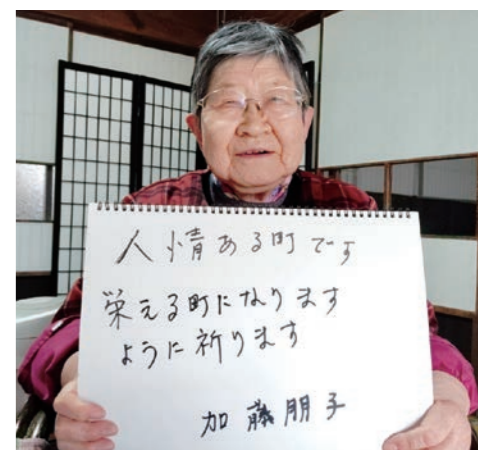 人情ある町です
栄える町になります
ように祈ります
加藤朋子